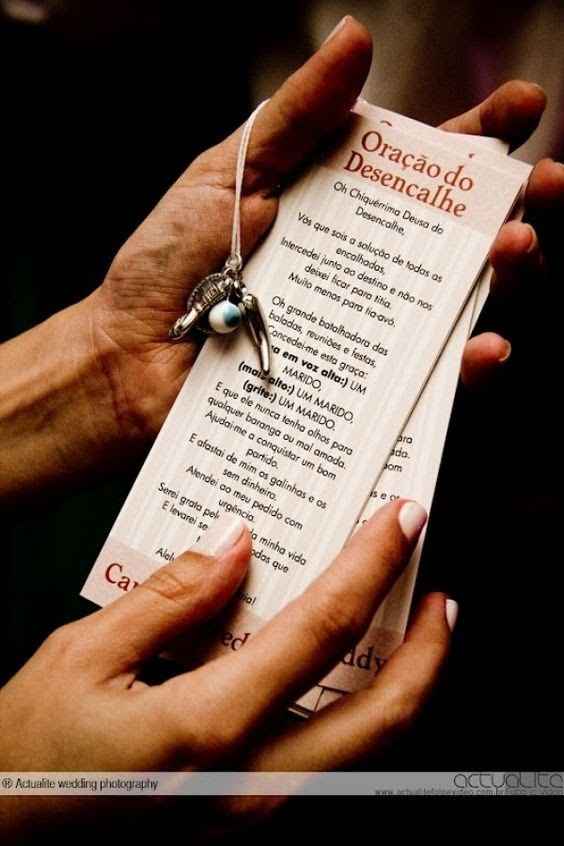 Oração do
Desencalhe
Oh Chiquérrima Deusa do
Desencalhe,
Vós que sois a solução de todas as
encalhadas,
Intercedei junto ao destino e não nos
deixei ficar para titia.
Muito menos para tia-avó.
Oh grande batalhadora das
baladas, reuniões e festas,
Concedei-me esta graça:
em voz alta:) UM
MARIDO,
(mais alto:) UM MARIDO,
(grite:) UM MARIDO.
E que ele nunca tenha olhos para
qualquer baranga ou mal amada.
Ajudai-me a conquistar um bom
partido.
E afastai de mim os galinhas e os
sem dinheiro.
Atendei ao meu pedido com
urgência.
Serei grata minha vida
E levarei
todas que
® Actualite wedding photography
actualite